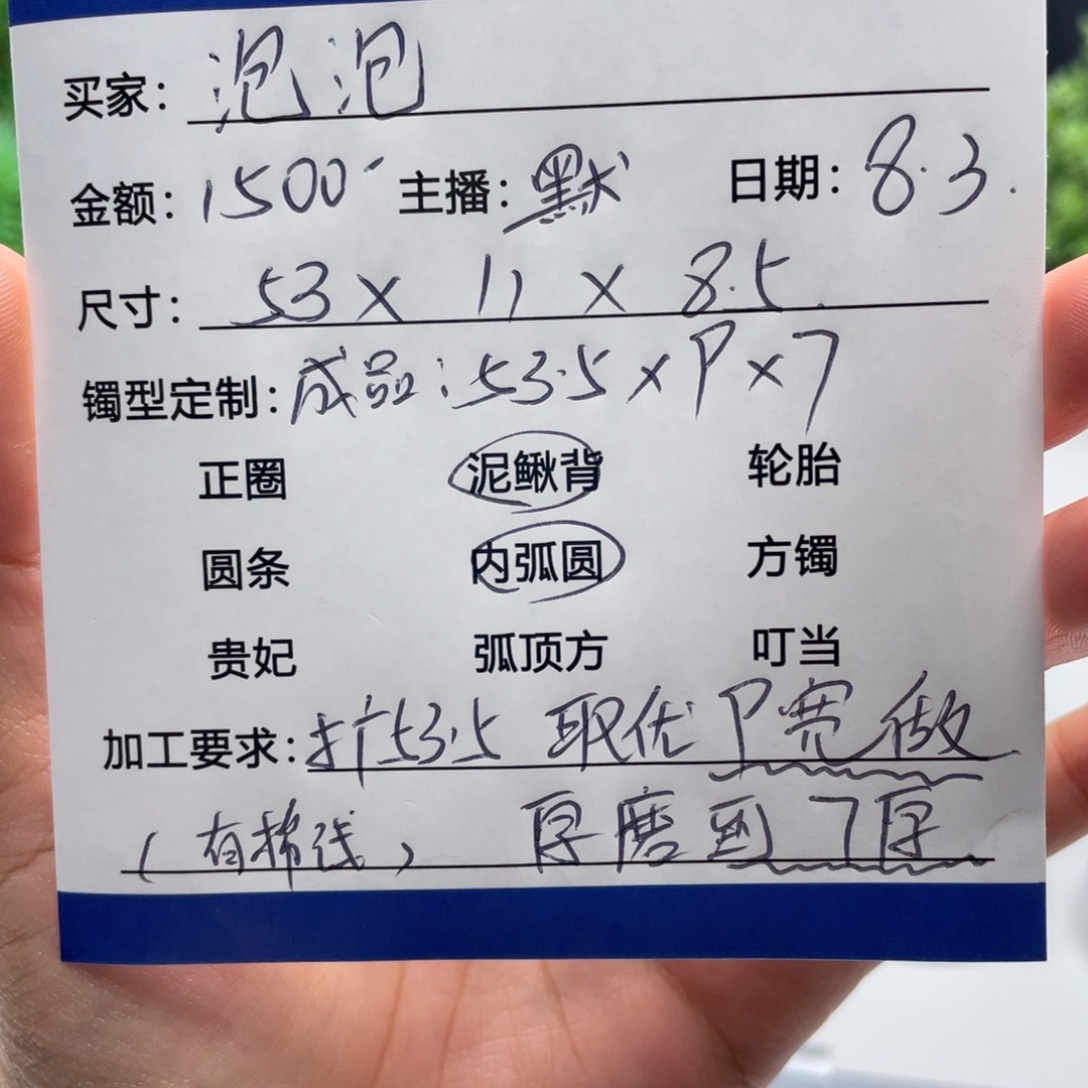 买家：泡泡
金额：1500 主播：默 日期：8.3.
尺寸：53 × 11 × 8.5
镯型定制：成品：53.5 × 9 × 7
正圈 泥鳅背 轮胎
圆条 内弧圆 方镯
贵妃 弧顶方 叮当
加工要求：扩53.5 取优 9宽做
（有棉线） 厚磨到7厚